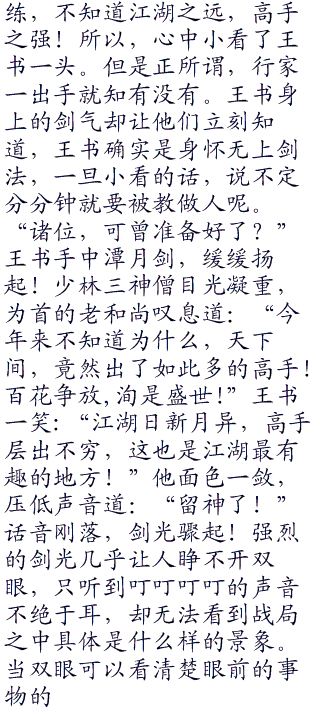 练，不知道江湖之远，高手
之强！所以，心中小看了王
书一头。但是正所谓，行家
一出手就知有没有。王书身
上的剑气却让他们立刻知
道，王书确实是身怀无上剑
法，一旦小看的话，说不定
分分钟就要被教做人呢。
“诸位，可曾准备好了？”
王书手中潭月剑，缓缓扬
起！少林三神僧目光凝重，
为首的老和尚叹息道：“今
年来不知道为什么，天下
间，竟然出了如此多的高手！
百花争放,洵是盛世!”王书
一笑:“江湖日新月异，高手
层出不穷，这也是江湖最有
趣的地方！”他面色一敛，
压低声音道：“留神了！”
话音刚落，剑光骤起！强烈
的剑光几乎让人睁不开双
眼，只听到叮叮叮叮的声音
不绝于耳，却无法看到战局
之中具体是什么样的景象。
当双眼可以看清楚眼前的事
物的